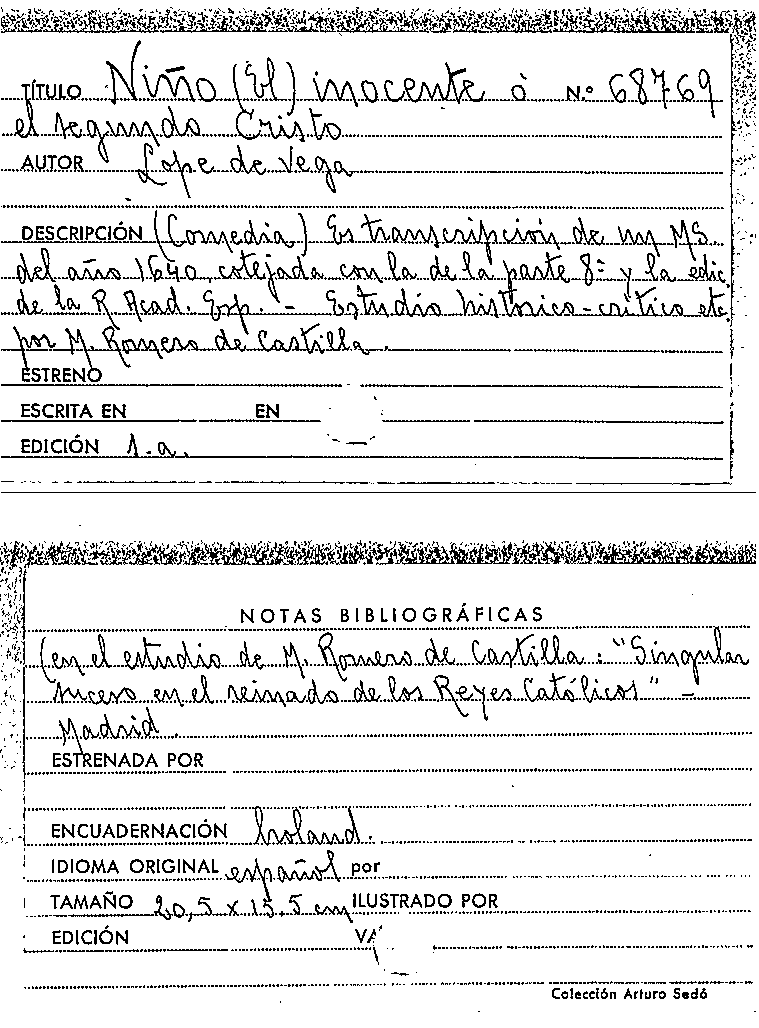 TÍTULO Niño (El) inocente ò N.º 68769
el segundo Cristo
AUTOR Lope de Vega
DESCRIPCIÓN (Comedia) Es transcripción de un MS.
del año 1640, cotejada con la de la parte 8ª y la edic.
de la R. Acad. Esp. - Estudio histórico-crítico etc.
por M. Romero de Castilla.
ESTRENO
ESCRITA EN EN
EDICIÓN 1.a.
NOTAS BIBLIOGRÁFICAS
(en el estudio de M. Romero de Castilla: "Singular
suceso en el reinado de los Reyes Católicos" -
Madrid.
ESTRENADA POR
ENCUADERNACIÓN holand.
IDIOMA ORIGINAL español por
TAMAÑO 20,5 x 15.5 cm ILUSTRADO POR
EDICIÓN
Colección Arturo Sedó